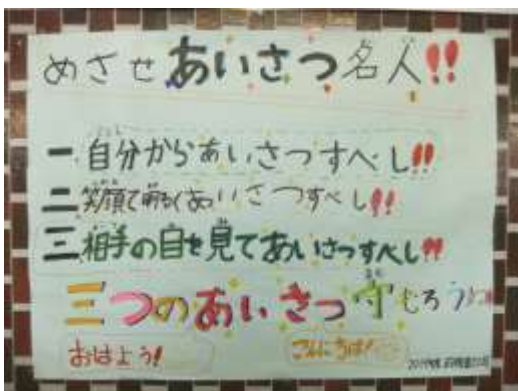 めざせあいさつ名人!!
一.自分からあいさつすべし!!
二.笑顔で明るくあいさつすべし!!
三.相手の目を見てあいさつすべし!!
三つのあいさつ守
おはよう!
こんにちは!